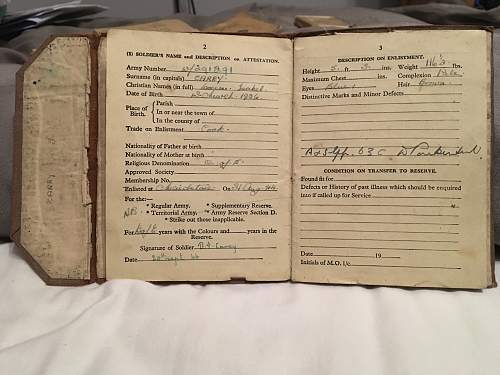 2
(I) SOLDIER'S NAME and DESCRIPTION on ATTESTATION.
Army Number
Surname (in capitals) CAREY.
Christian Names (in full)
Date of Birth March 1926
Place of Birth.
Parish
In or near the town of
In the county of
Trade on Enlistment Cook.
Nationality of Father at birth
Nationality of Mother at birth
Religious Denomination C of E.
Approved Society
Membership No.
Enlisted at On 44
For the:—
* Regular Army. * Supplementary Reserve.
* Territorial Army. * Army Reserve Section D.
* Strike out those inapplicable.
For years with the Colours and years in the
Reserve.
Signature of Soldier Carey
Date 20th Sept 44
3
DESCRIPTION ON ENLISTMENT.
Height 5 ft. ins. Weight lbs.
Maximum Chest ins. Complexion Pale.
Eyes Blue Hair Brown.
Distinctive Marks and Minor Defects
CONDITION ON TRANSFER TO RESERVE.
Found fit for
Defects or History of past illness which should be enquired
into if called up for Service
Date 19
Initials of M.O. i/c